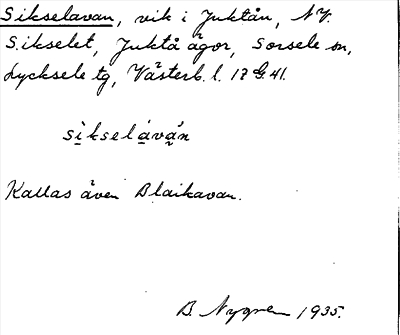 Sikselavan, vik i Juktån, NV.
Sikselet, Juktå ägor, Sorsele sn,
Lycksele tg, Västerb. l. 17 G. 41.
sìkselávän
Kallas även Blaikavan.
B. Nygren 1935.